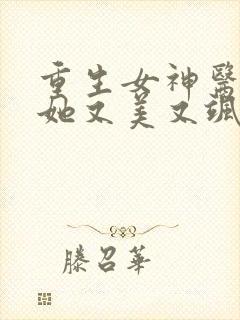 重生女神醫
她又美又颯
滕召華